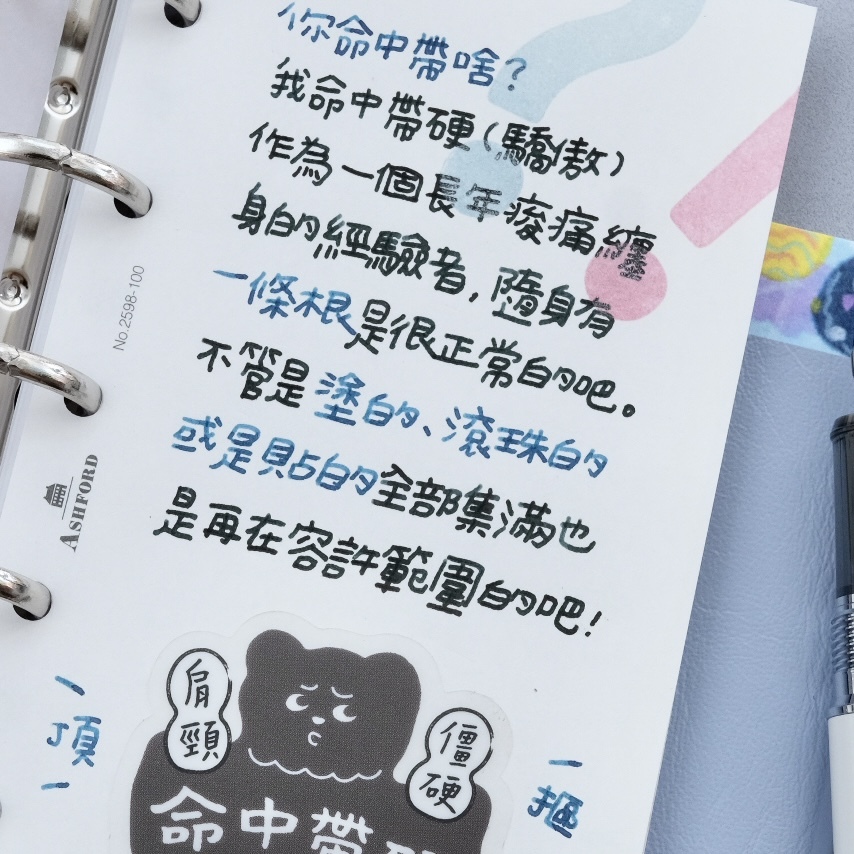 你命中帶啥？
我命中帶硬（驕傲）
作為一個長年痠痛纏
身的經驗者，隨身有
一條根是很正常的吧。
不管是塗的、滾珠的
或是貼的全部集滿也
是再在容許範圍的吧！
No.2598-100
ASHFORD
肩頸
僵硬
一頂一
一摳
命中帶